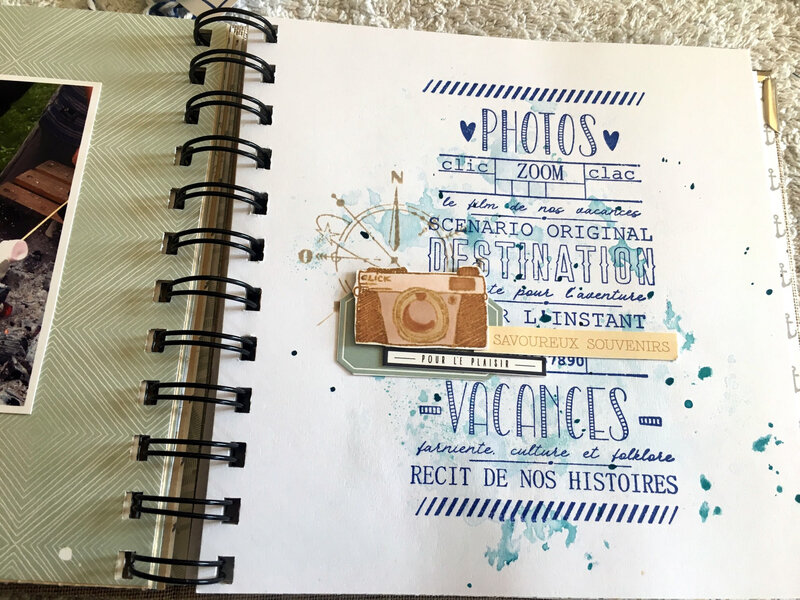 PHOTOS
clic ZOOM clac
le film de nos vacances
N
SCENARIO ORIGINAL
DESTINATION
CLICK
pour l'aventure
L'INSTANT
SAVOUREUX SOUVENIRS
POUR LE PLAISIR
7890
VACANCES
farniente, culture et folklore
RECIT DE NOS HISTOIRES